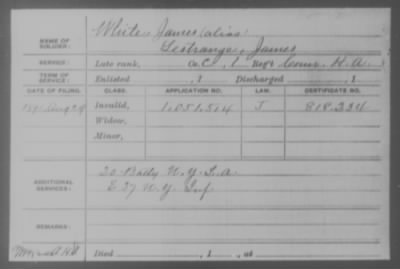 White, James (alias
NAME OF SOLDIER: Lestrange, James
SERVICE: Late rank, Co. C, 1 Reg't Conn. H. A.
TERM OF SERVICE: Enlisted , 1 Discharged , 1
DATE OF FILING. CLASS. APPLICATION NO. LAW. CERTIFICATE NO.
Aug 29 Invalid, 1.051.514 J 818.334
Widow,
Minor,
ADDITIONAL SERVICES: Batty N.Y. L. A.
E 37 N.Y. Inf
REMARKS:
Died , 1 , at